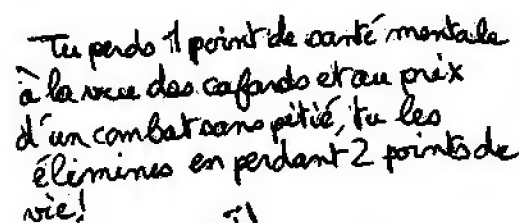 Tu perds 1 point de santé mentale
à la vue des caffards et au prix
d'un combat sans pitié, tu les
élimines en perdant 2 points de
vie!